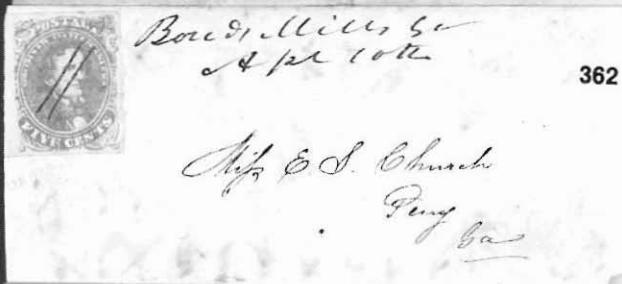 POSTAGE
FIVE CENTS
Bond's Mills Ga
Apl 10th
362
Miss E S. Church
Perry
Ga